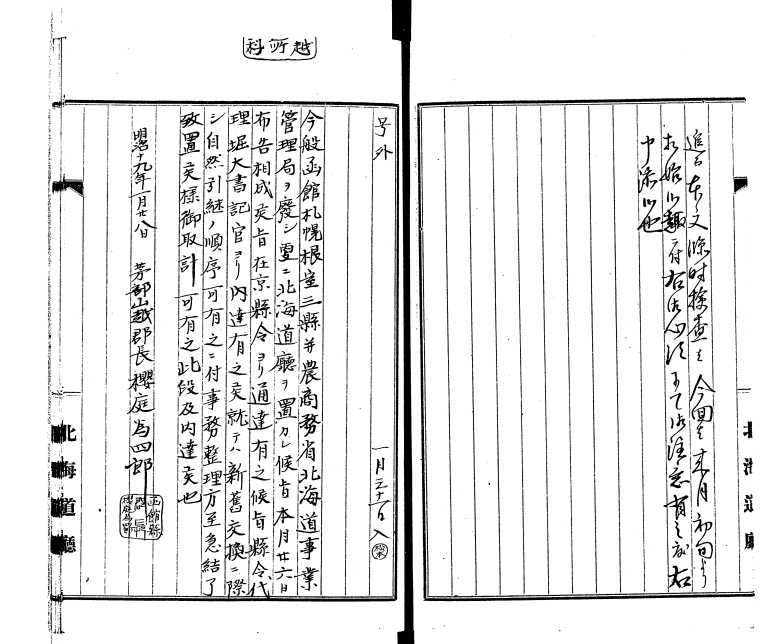 進而本文臨時検査ハ今回ハ来月初旬より
相始候趣ニ付右御心得まで御注意有之度右
申添候也
北海道廳
越所科
号外
一月三十一日入
今般函館札幌根室三縣并農商務省北海道事業
管理局ヲ廢シ更ニ北海道廳ヲ置カレ候旨本月廿六日
布告相成候旨在京縣令ヨリ通達有之候旨縣令代
理堀大書記官ヨリ内達有之候就テハ新舊交換ニ際
シ自然引継ノ順序可有之ニ付事務整理方至急結了
致置候様御取計可有之此段及内達候也
明治十九年一月廿八日 茅部山越郡長櫻庭為四郎
函館縣
北海道廳